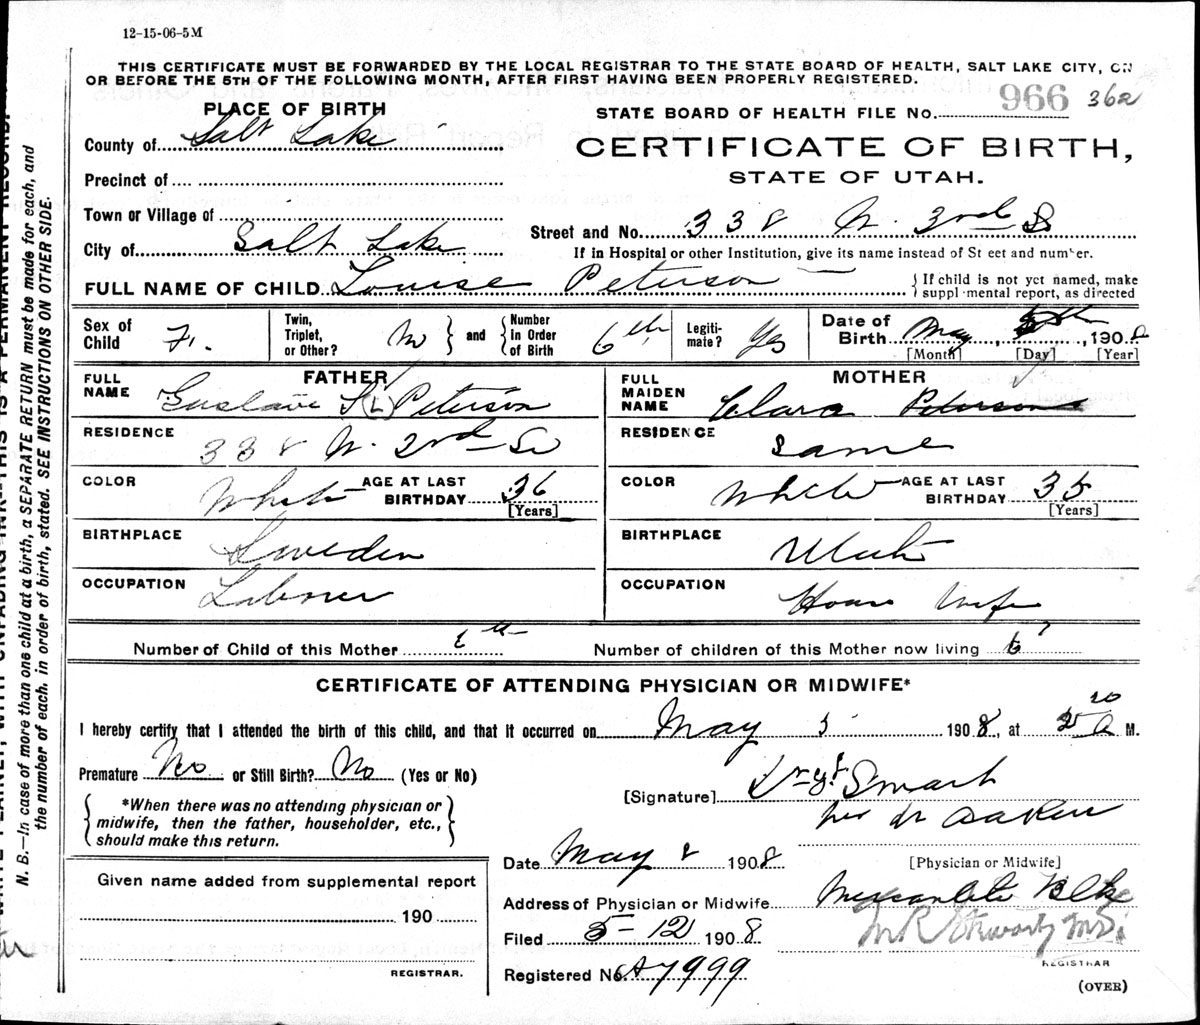 12-15-06-5M
THIS CERTIFICATE MUST BE FORWARDED BY THE LOCAL REGISTRAR TO THE STATE BOARD OF HEALTH, SALT LAKE CITY, ON
OR BEFORE THE 5TH OF THE FOLLOWING MONTH, AFTER FIRST HAVING BEEN PROPERLY REGISTERED.
PLACE OF BIRTH
STATE BOARD OF HEALTH FILE No. 966 362
County of Salt Lake
CERTIFICATE OF BIRTH,
STATE OF UTAH.
Precinct of
Town or Village of
Street and No. 338 N. 3rd
City of Salt Lake
If in Hospital or other Institution, give its name instead of St eet and num er.
FULL NAME OF CHILD Louise Peterson
If child is not yet named, make
suppl mental report, as directed
Sex of Child F.
Twin, Triplet, or Other? No
and Number in Order of Birth 6th
Legiti-mate? Yes
Date of Birth May 5th, 1908
[Month] [Day] [Year]
FATHER
FULL NAME Gustave (L) Peterson
RESIDENCE 338 N. 2nd So
COLOR White AGE AT LAST BIRTHDAY 36
[Years]
BIRTHPLACE Sweden
OCCUPATION Laborer
MOTHER
FULL MAIDEN NAME Clara Peterson
RESIDENCE Same
COLOR White AGE AT LAST BIRTHDAY 35
[Years]
BIRTHPLACE Utah
OCCUPATION House Wife
Number of Child of this Mother 6th Number of children of this Mother now living 6
CERTIFICATE OF ATTENDING PHYSICIAN OR MIDWIFE*
I hereby certify that I attended the birth of this child, and that it occurred on May 5 1908, at 2 20 a M.
Premature No or Still Birth? No (Yes or No)
*When there was no attending physician or
midwife, then the father, householder, etc.,
should make this return.
[Signature] Smart
Date May 8 1908
[Physician or Midwife]
Given name added from supplemental report
190
REGISTRAR.
Address of Physician or Midwife Mercantile Blk
Filed 5-12 1908
REGISTRAR
Registered No. A7999
(OVER)
N. B.—In case of more than one child at a birth, a SEPARATE RETURN must be made for each, and
the number of each, in order of birth, stated. SEE INSTRUCTIONS ON OTHER SIDE.